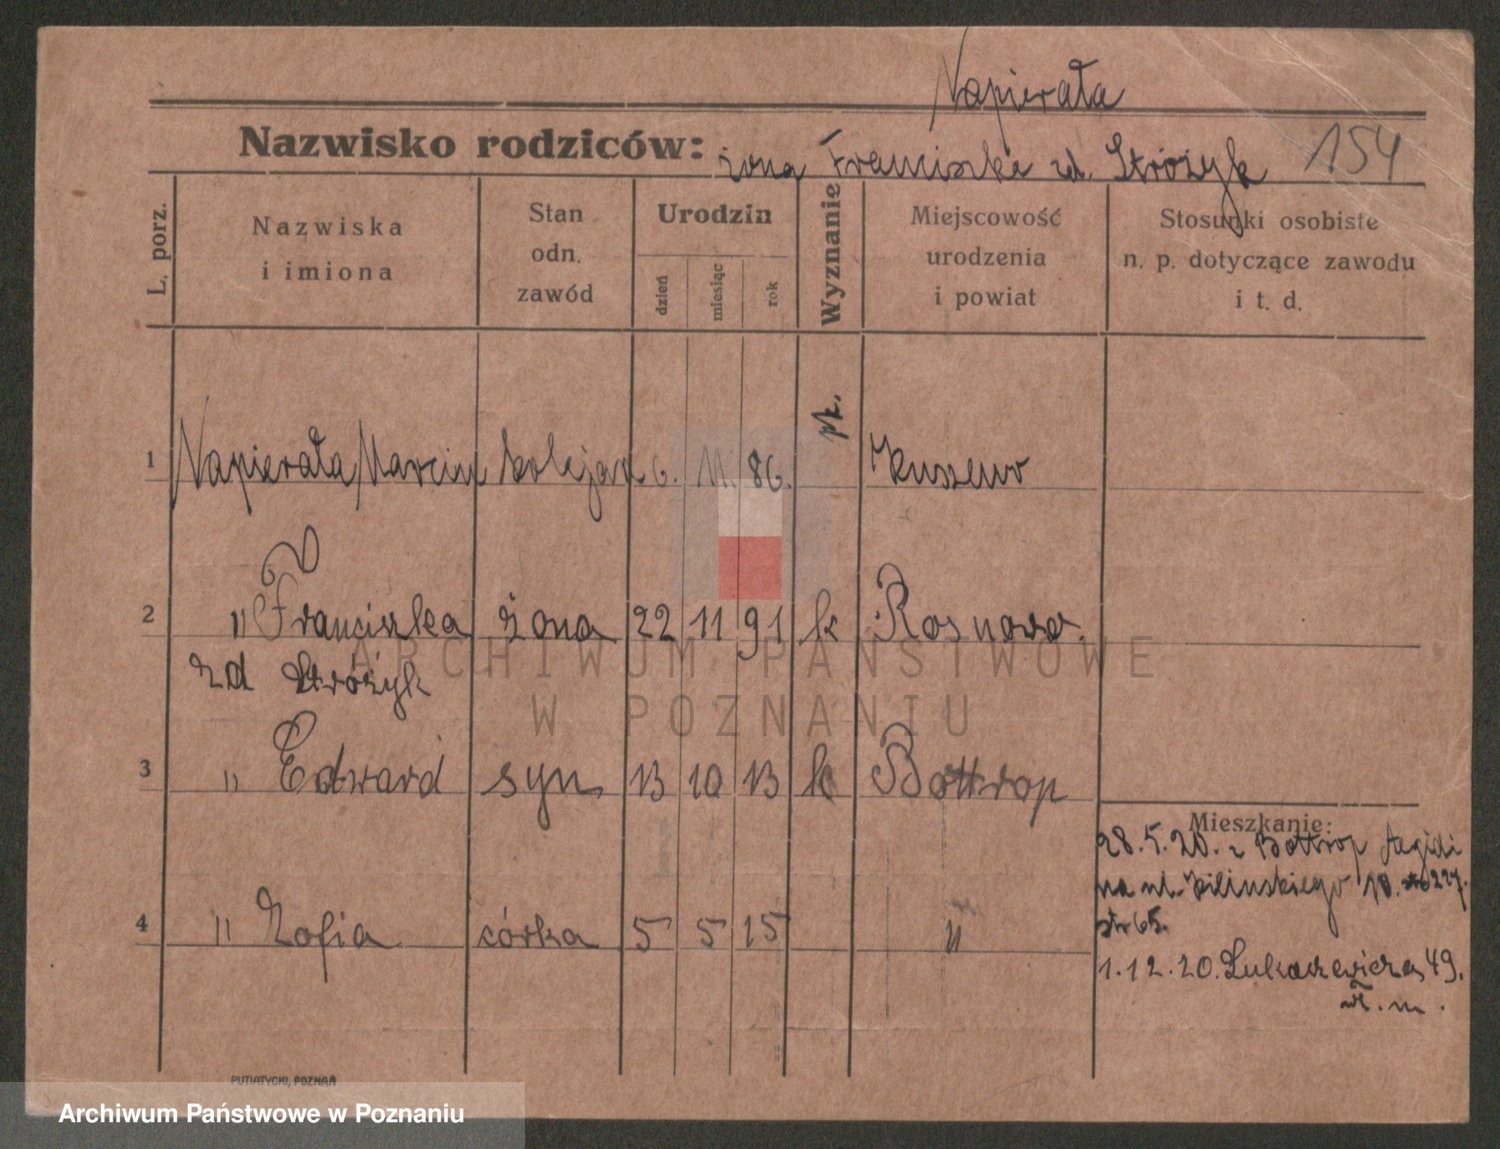 Napierała
Nazwisko rodziców: żona Franciszka zd. Stróżyk 154
L. porz.
Nazwiska i imiona
Stan odn. zawód
Urodzin
dzień
miesiąc
rok
Wyznanie
Miejscowość urodzenia i powiat
Stosunki osobiste n. p. dotyczące zawodu i t. d.
1 Napierała Marcin kolejarz 6. 11. 86.
2 " Franciszka żona 22 11 91 k Rosnowo.
zd Stróżyk
3 " Edward syn 13 10 13 k Bottrop
Mieszkanie:
28.5.20. z Bottrop
na ul. Kilinskiego 10.
str 65.
4 " Zofia córka 5 5 15 "
1.12.20. Łukaszewicza 49.
PUTIATYCKI, POZNAŃ
ARCHIWUM PAŃSTWOWE
W POZNANIU
Archiwum Państwowe w Poznaniu